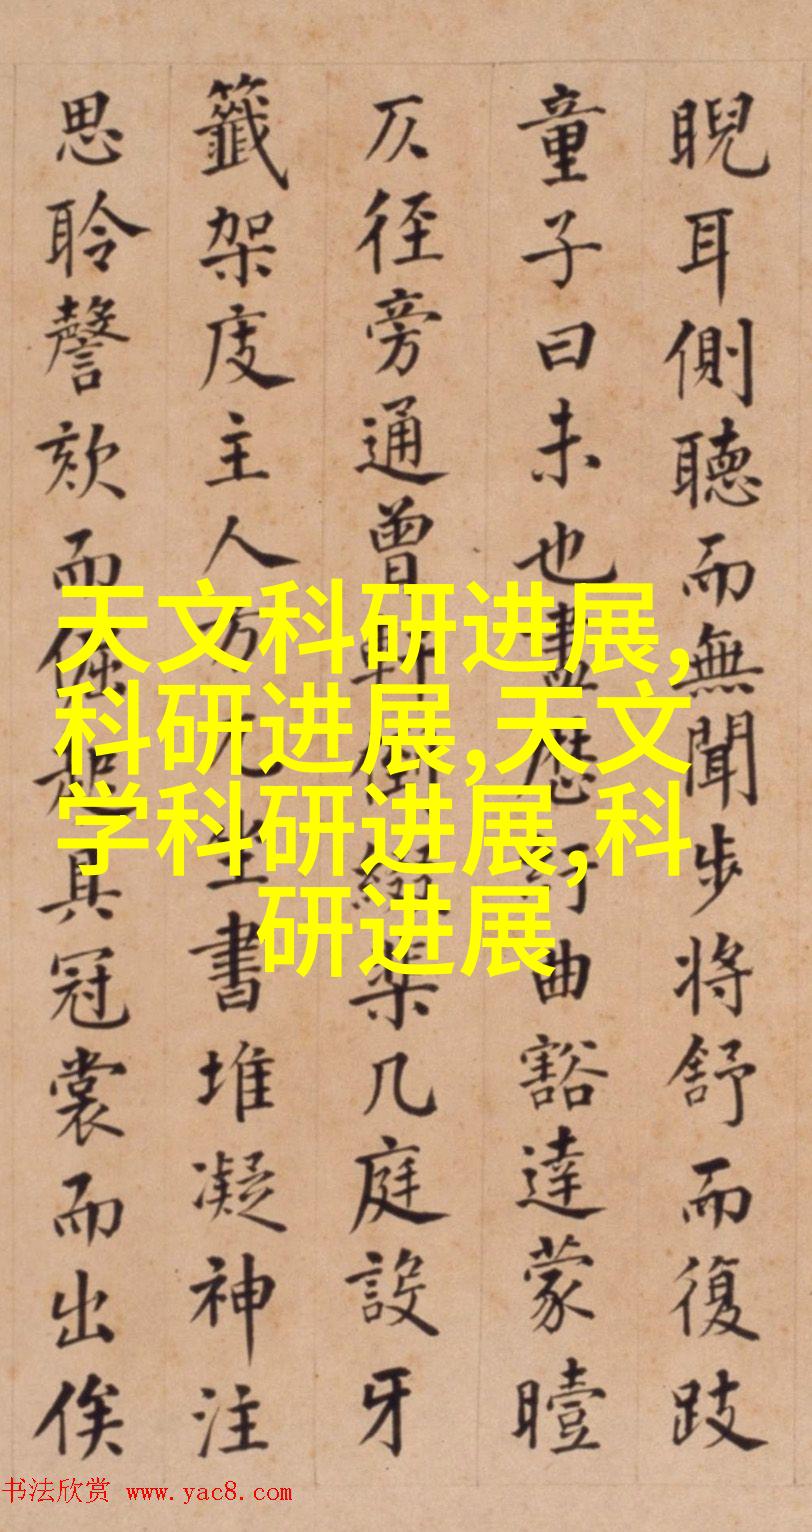 睨耳側聽而無聞步將舒而復跂
童子曰未也盡歷行曲豁達蒙曀
仄徑旁通曾軒側綴榘几庭設牙
籤架庋主人方兀坐書堆凝神注
思聆謦欬而倔起具冠裳而出俟
天文科研进展,
科研进展,天文
学科研进展,科
研进展
书法欣赏 www.yac8.com